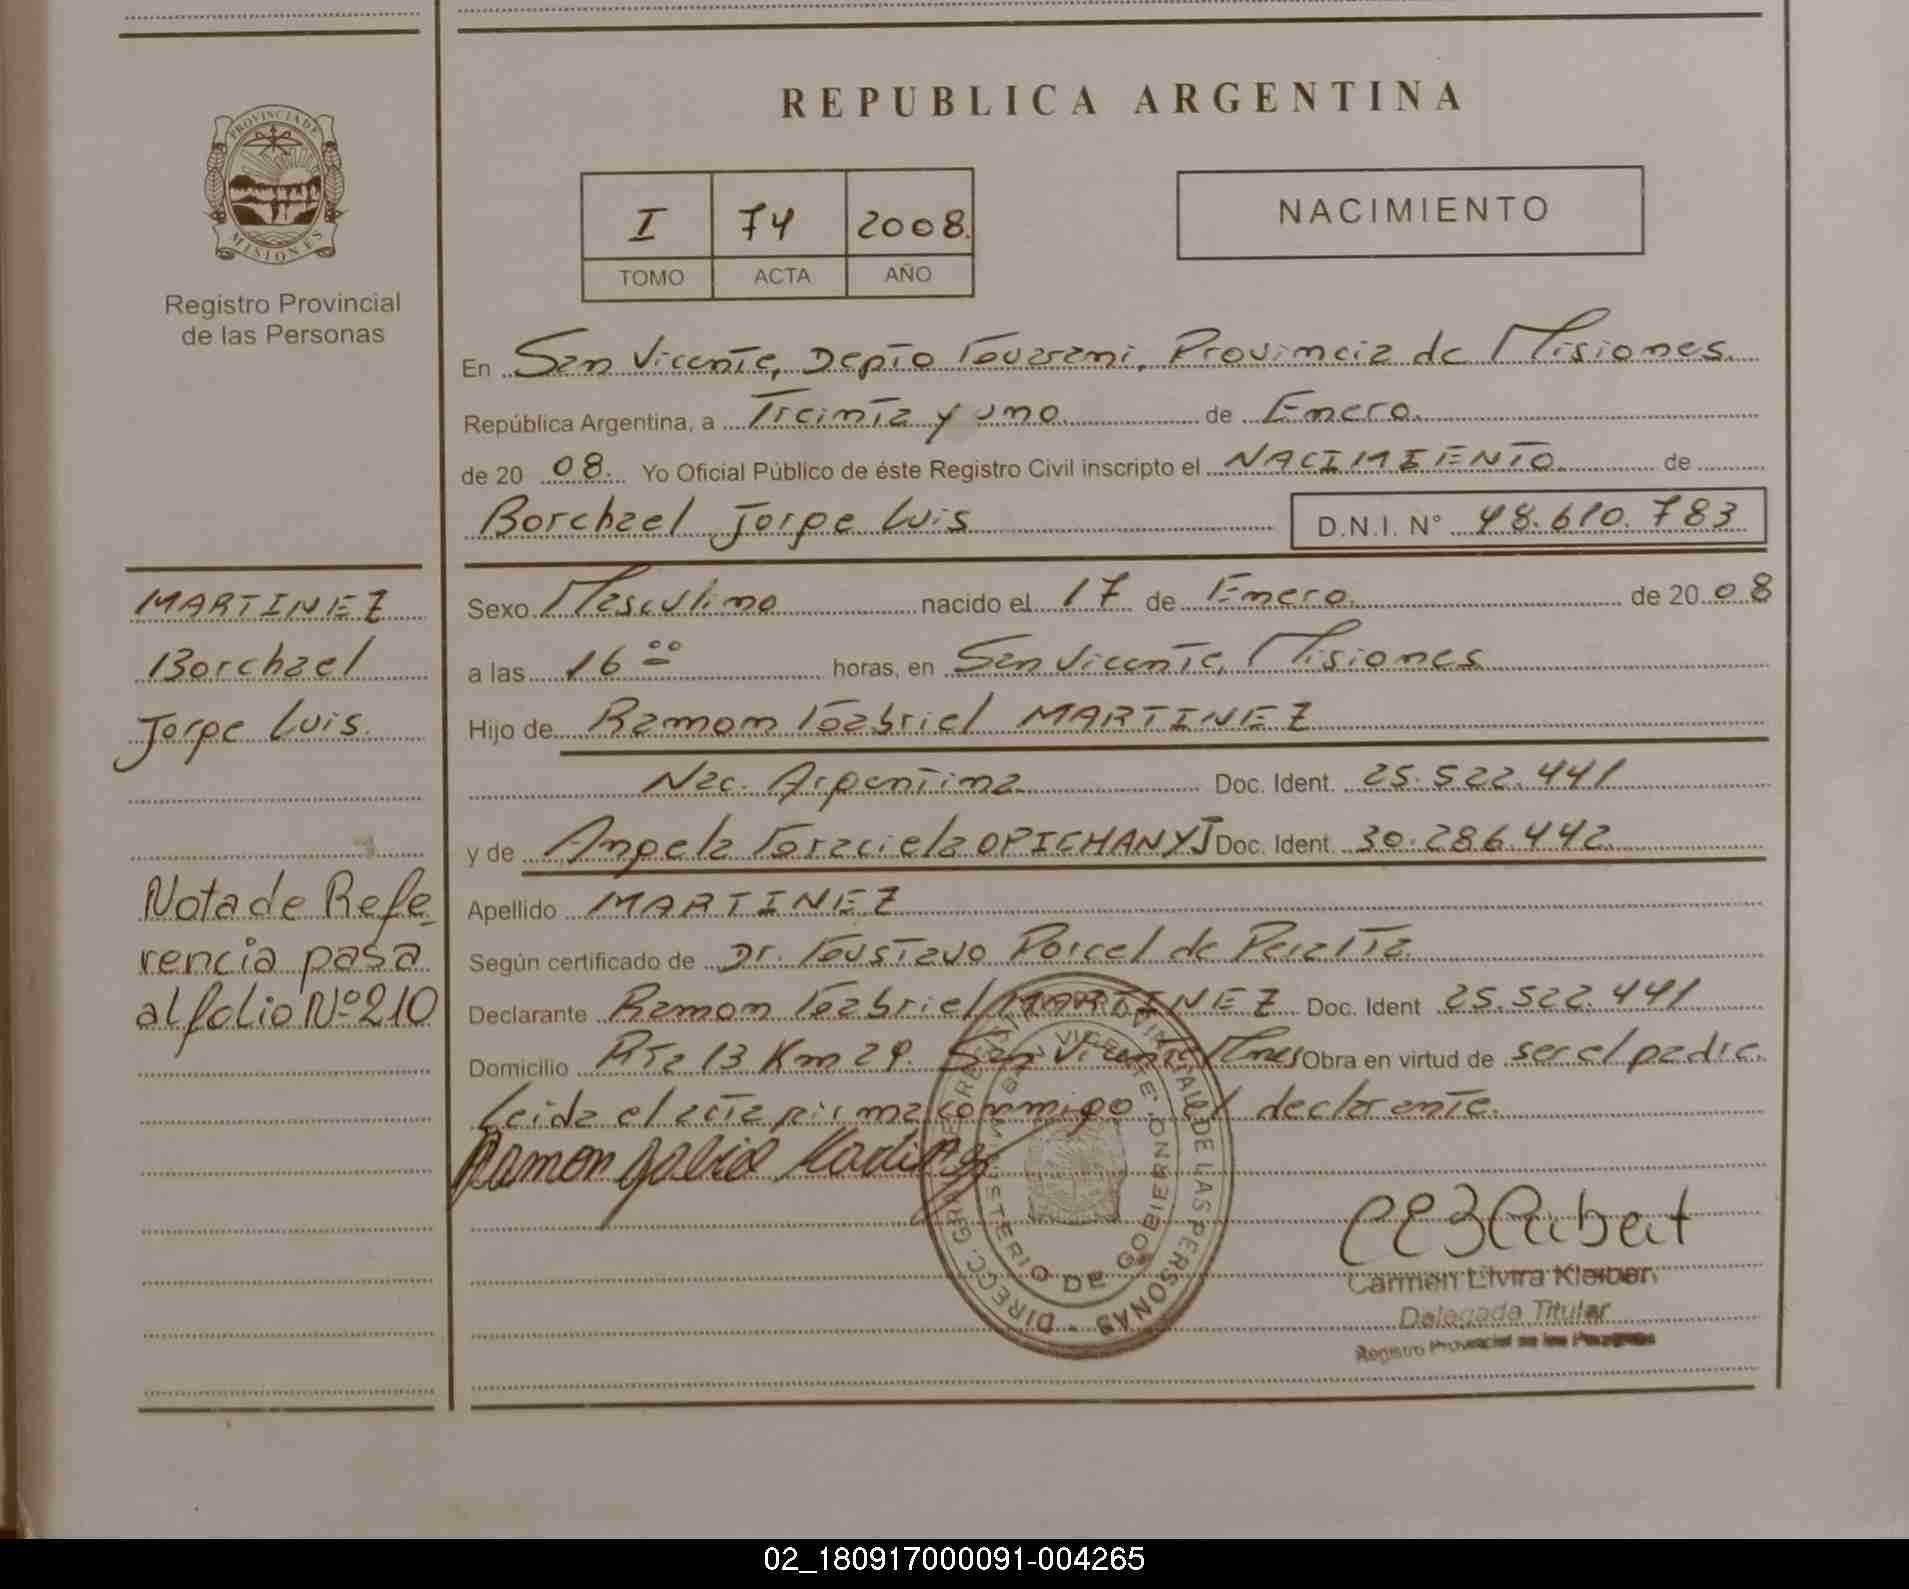 REPUBLICA ARGENTINA
PROVINCIA DE
MISIONES
Registro Provincial
de las Personas
I 74 2008.
TOMO ACTA AÑO
NACIMIENTO
En San Vicente, Depto Guarani, Provincia de Misiones
República Argentina, a Treinta y uno de Enero
de 2008. Yo Oficial Público de éste Registro Civil inscripto el NACIMIENTO de
Borchael Jorge Luis D.N.I. N° 48.610.783
MARTINEZ
Borchael
Jorge Luis.
Sexo Masculino nacido el 17 de Enero de 2008
a las 16 00 horas, en San Vicente, Misiones
Hijo de Ramon Gabriel MARTINEZ
Nac. Argentina Doc. Ident. 25.522.441
y de Angela Graciela OPICHANYJ Doc. Ident. 30.286.442
Apellido MARTINEZ
Según certificado de Dr. Gustavo Porcel de Peralta
Declarante Ramon Gabriel MARTINEZ Doc. Ident 25.522.441
Domicilio Rta 13 Km 29. San Vicente Mnes Obra en virtud de ser el padre.
Leida el acta firma conmigo el declarante.
Nota de Refe
rencia pasa
al folio Nº 210
Ramon Gabriel Martinez
DIRECC. GRAL. REGISTRO PROVINCIAL DE LAS PERSONAS
MINISTERIO DE GOBIERNO
SAN VICENTE
Carmen Elvira Kleiber
Delegada Titular
Registro Provincial de las Personas
02_180917000091-004265